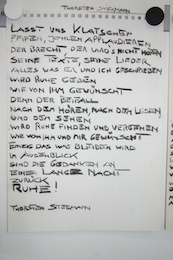 THORSTEN STEGMANN
LASST UNS KLATSCHEN
PFEIFEN, JOHLEN APPLAUDIEREN
DER BRECHT, DER WIRD'S NICHT HÖREN
SEINE TEXTE, SEINE LIEDER
ALLES WAS ER UND ICH GESCHRIEBEN
WIRD RUHE GEBEN
WIE VON IHM GEWÜNSCHT
DENN DER BEIFALL
NACH DEM HÖREN, NACH DEM LESEN
UND DEM SEHEN
WIRD RUHE FINDEN UND VERGEHEN
WIE VON IHM UND MIR GEWÜNSCHT
EINZIG DAS WAS BLEIBEN WIRD
IM AUGENBLICK
SIND DIE GEDANKEN AN
EINE LANGE NACHT
ZURÜCK
RUHE!
THORSTEN STEGMANN